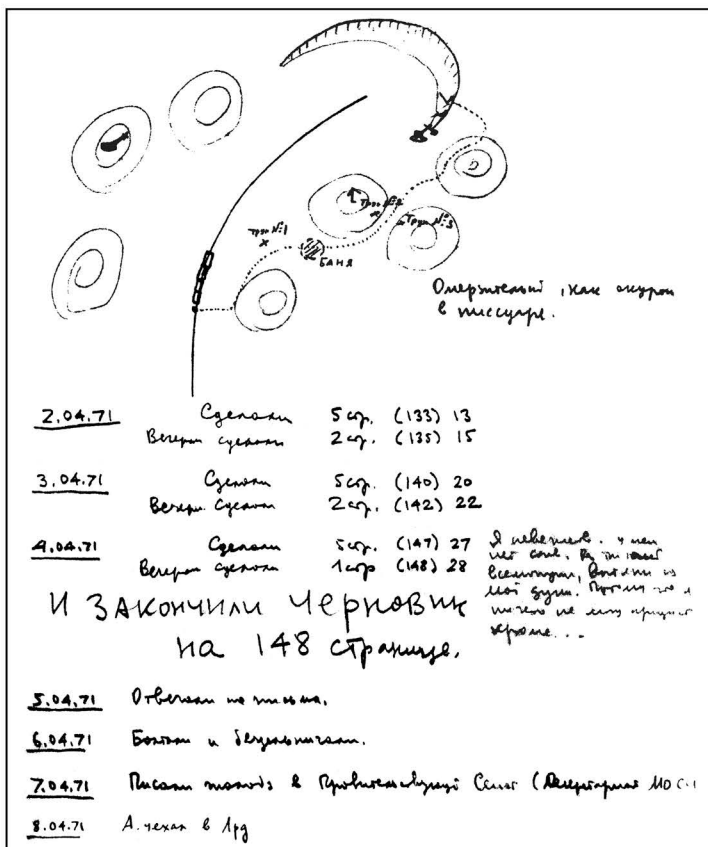 Труп №1
Труп №2
Труп №3
БАНЯ
Омерзительный, как окурок
в писсуаре.
2.04.71 Сделали 5 стр. (133) 13
Вечером сделали 2 стр. (135) 15
3.04.71 Сделали 5 стр. (140) 20
Вечером сделали 2 стр. (142) 22
4.04.71 Сделали 5 стр. (147) 27
Вечером сделали 1 стр (148) 28
Я невежа. У меня
нет слов.
Всемогущий,
мой души.
ничего не могу придумать
кроме...
И ЗАКОНЧИЛИ ЧЕРНОВИК
на 148 странице.
5.04.71 Отвечали на письма.
6.04.71 Болтали и бездельничали.
7.04.71 Писали жалобу в Правительствующий Сенат (Секретариат МО С.
8.04.71 А. уехал в Лрд